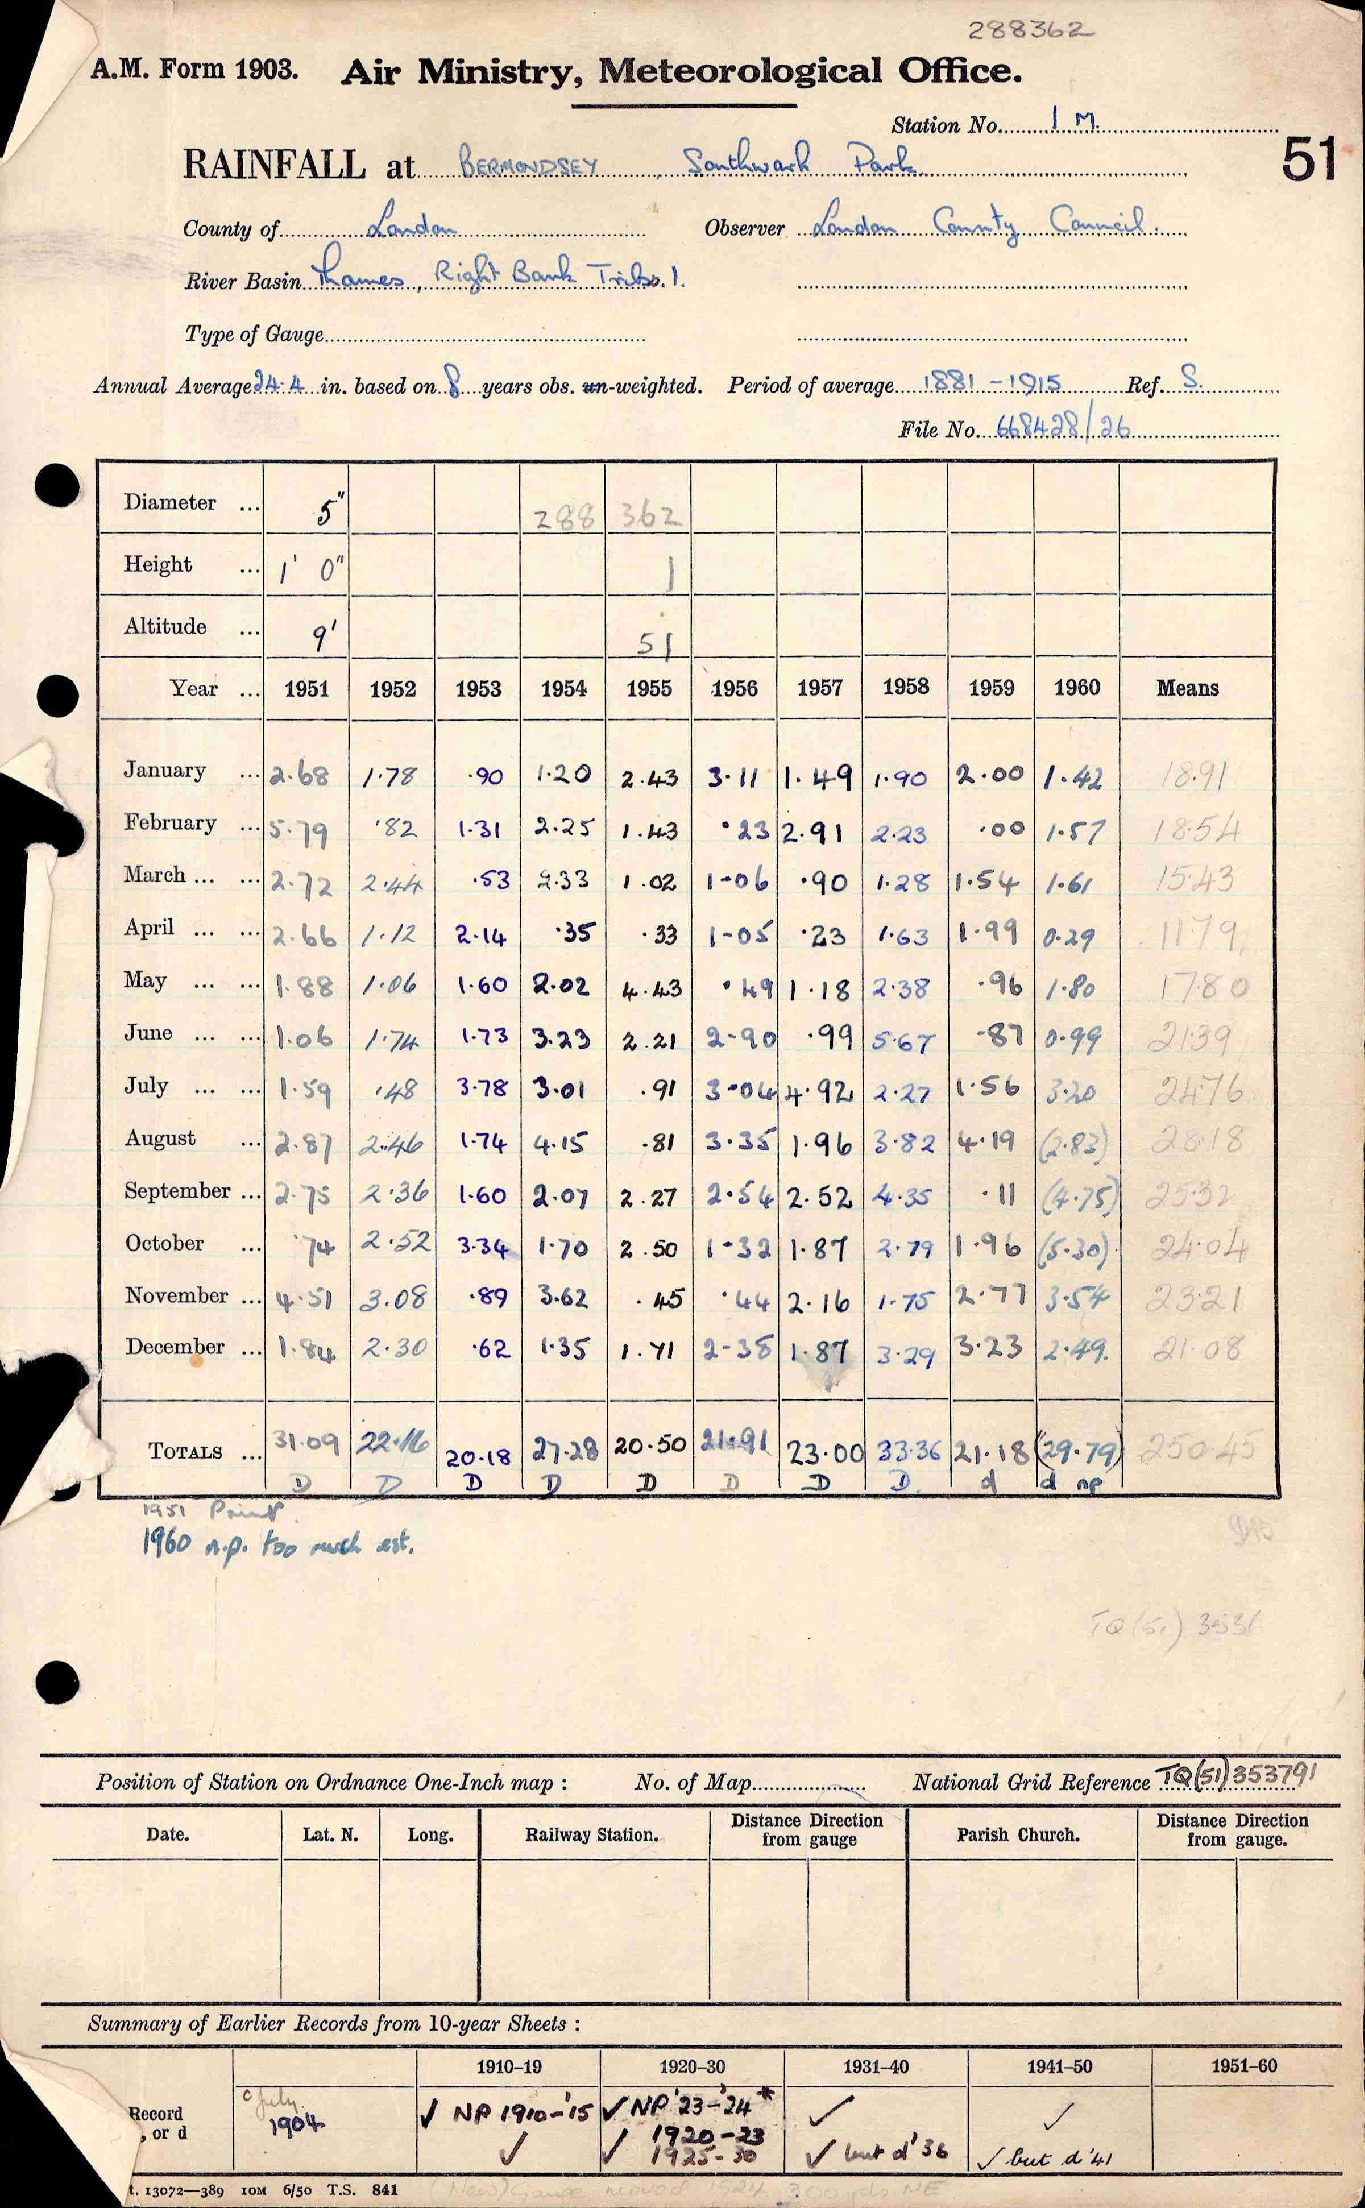 288362
A.M. Form 1903. Air Ministry, Meteorological Office.
Station No. 1 M.
51
RAINFALL at BERMONDSEY, Southwark Park
County of London Observer London County Council.
River Basin Thames, Right Bank Tribs. 1.
Type of Gauge
Annual Average 24.4 in. based on 8 years obs. un-weighted. Period of average 1881-1915 Ref. S.
File No. 668428/26
Diameter ... 5" 288 362
Height ... 1' 0" 1
Altitude ... 9' 51
Year ... 1951 1952 1953 1954 1955 1956 1957 1958 1959 1960 Means
January ... 2.68 1.78 .90 1.20 2.43 3.11 1.49 1.90 2.00 1.42 18.91
February ... 5.79 .82 1.31 2.25 1.43 .23 2.91 2.23 .00 1.57 18.54
March ... ... 2.72 2.44 .53 2.33 1.02 1.06 .90 1.28 1.54 1.61 15.43
April ... ... 2.66 1.12 2.14 .35 .33 1.05 .23 1.63 1.99 0.29 11.79
May ... ... 1.88 1.06 1.60 2.02 4.43 .49 1.18 2.38 .96 1.80 17.80
June ... ... 1.06 1.74 1.73 3.23 2.21 2.90 .99 5.67 .87 0.99 21.39
July ... ... 1.59 .48 3.78 3.01 .91 3.04 4.92 2.27 1.56 3.20 24.76
August ... 2.87 2.46 1.74 4.15 .81 3.35 1.96 3.82 4.19 (2.83) 28.18
September ... 2.75 2.36 1.60 2.07 2.27 2.54 2.52 4.35 .11 (4.75) 25.32
October ... .74 2.52 3.34 1.70 2.50 1.32 1.87 2.79 1.96 (5.30) 24.04
November ... 4.51 3.08 .89 3.62 .45 .44 2.16 1.75 2.77 3.54 23.21
December ... 1.84 2.30 .62 1.35 1.71 2.38 1.87 3.29 3.23 2.49. 21.08
TOTALS ... 31.09 22.16 20.18 27.28 20.50 21.91 23.00 33.36 21.18 (29.79) 250.45
D D D D D D D D. d d np
1951 Print
1960 n.p. too much est.
TQ (51) 3531
Position of Station on Ordnance One-Inch map : No. of Map National Grid Reference TQ(51)353791
Date. Lat. N. Long. Railway Station. Distance from Direction gauge Parish Church. Distance from Direction gauge.
Summary of Earlier Records from 10-year Sheets :
1910–19 1920–30 1931–40 1941–50 1951–60
Record , or d
July 1904
✓ NP 1910-'15 ✓ NP '23-'24* ✓ ✓
✓ ✓ 1920-23 1925-30 ✓ but d '36 ✓ but d '41
t. 13072—389 10M 6/50 T.S. 841 (New) Gauge moved 1924 300 yds NE